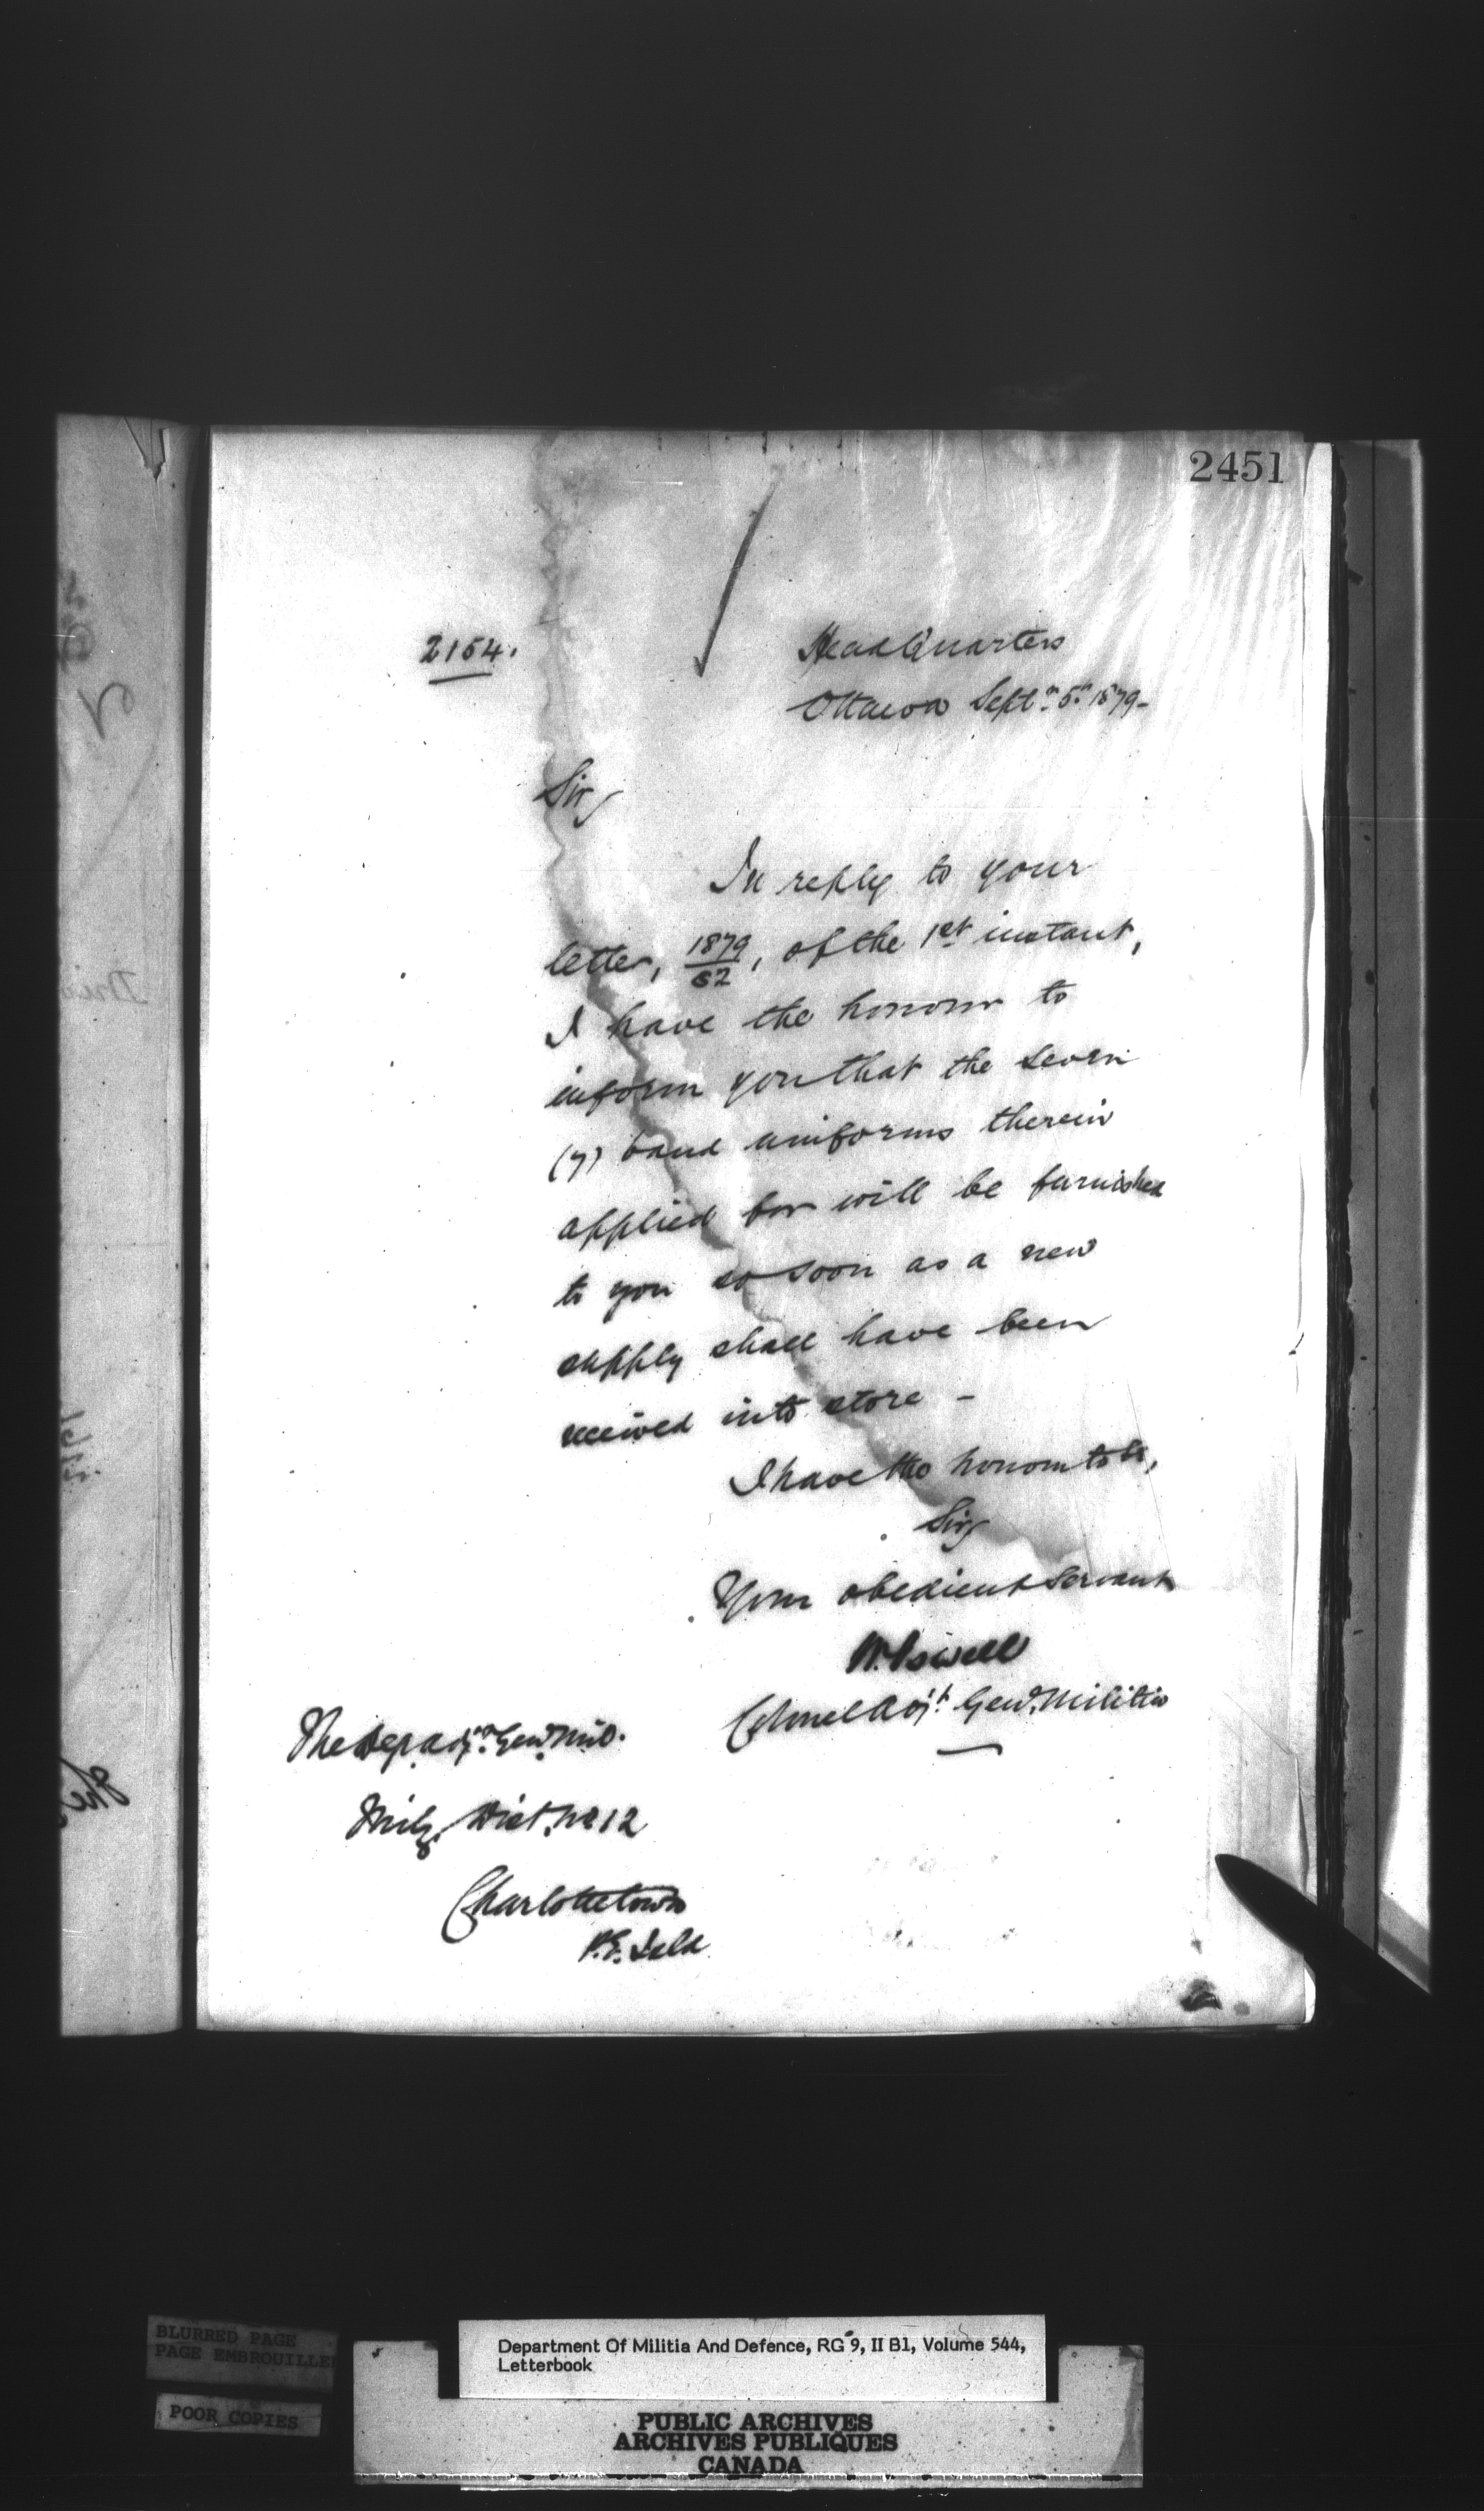 2451
2154.
HeadQuarters
Ottawa Septr. 5th 1879-
Sir,
In reply to your
letter, 1879/62, of the 1st instant,
I have the honour to
inform you that the seven
(7) band uniforms therein
applied for will be furnished
to you so soon as a new
supply shall have been
received into store -
I have the honour to be,
Sir,
Your obedient servant
W. Powell
Colonel Adjt. Genl. Militia
The Dep. Adjt. Genl. Mil.
Mily. Dist. No 12
Charlottetown
P.E. Isld
BLURRED PAGE
PAGE EMBROUILLEE
POOR COPIES
Department Of Militia And Defence, RG 9, II B1, Volume 544,
Letterbook
PUBLIC ARCHIVES
ARCHIVES PUBLIQUES
CANADA